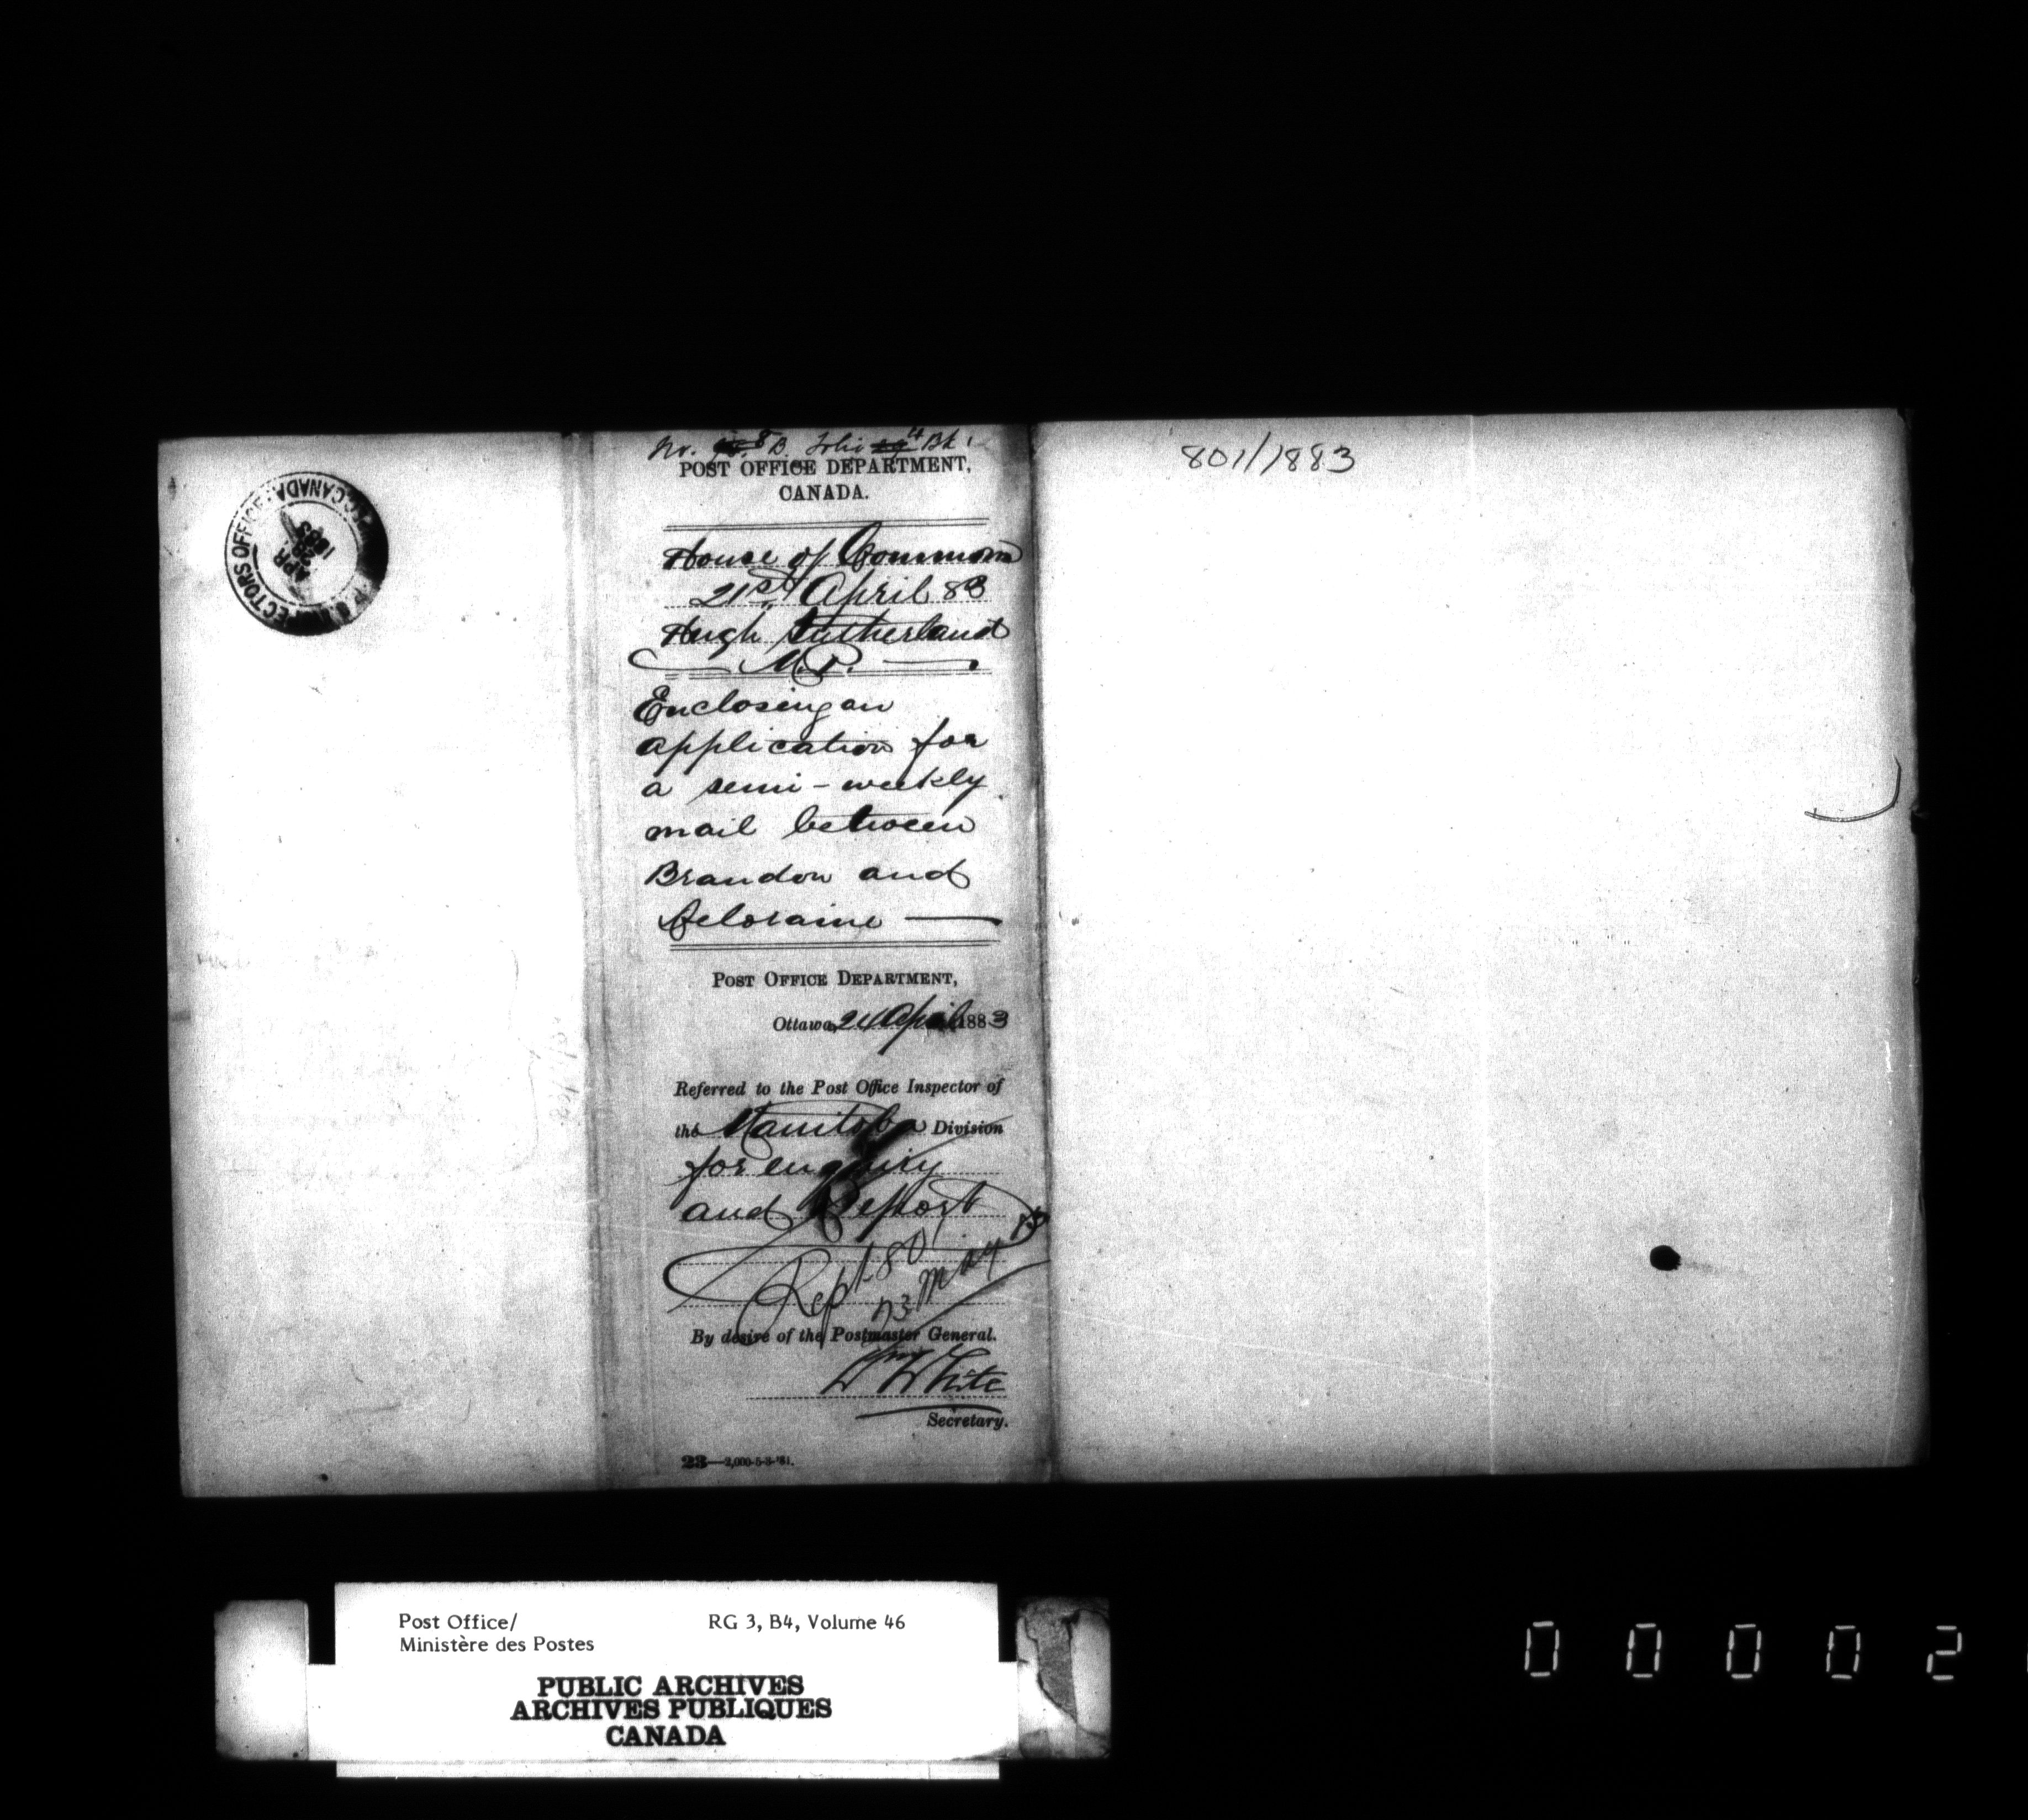 P.O. INSPECTORS OFFICE. CANADA.
APR
1883
No. 8 B. Folio 4 Bk 1
POST OFFICE DEPARTMENT,
CANADA.
House of Commons
21st April 83
Hugh Sutherland
M.P.
Enclosing an
application for
a semi-weekly
mail between
Brandon and
Deloraine
POST OFFICE DEPARTMENT,
Ottawa, 24 April 1883
Referred to the Post Office Inspector of
the Manitoba Division
for enquiry
and Report
Rept 801
May 83
By desire of the Postmaster General.
Wm White
Secretary.
23—2,000-5-3-'81.
801/1883
Post Office/
Ministère des Postes
RG 3, B4, Volume 46
PUBLIC ARCHIVES
ARCHIVES PUBLIQUES
CANADA
0 0 0 0 2